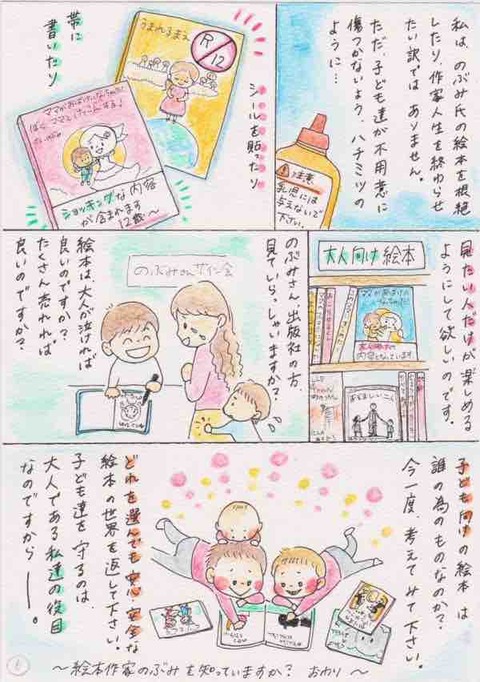 私は、のぶみ氏の絵本を根絶
したり、作家人生を終わらせ
たい訳では ありません。
ただ、子ども達が不用意に
傷つかないよう、ハチミツの
ように…
注意
乳児には
与えないで
下さい。
シールを貼ったり
うまれるまえ
R
12
帯に
書いたり
ショッキングな内容
が含まれます
12歳〜
大人向け絵本
見たい人だけが楽しめる
ようにして欲しいのです。
のぶみさん、出版社の方、
見ていらっしゃいますか?
のぶみさんサイン会
絵本は、大人が泣ければ
良いのですか?
たくさん売れれば
良いのですか?
子ども向けの絵本は
誰の為のものなのか?
今一度、考えてみて下さい。
どれを選んでも安心・安全な
絵本の世界を返して下さい。
子ども達を守るのは、
大人である私達の役目
なのですから――。
〜絵本作家のぶみを知っていますか? おわり〜